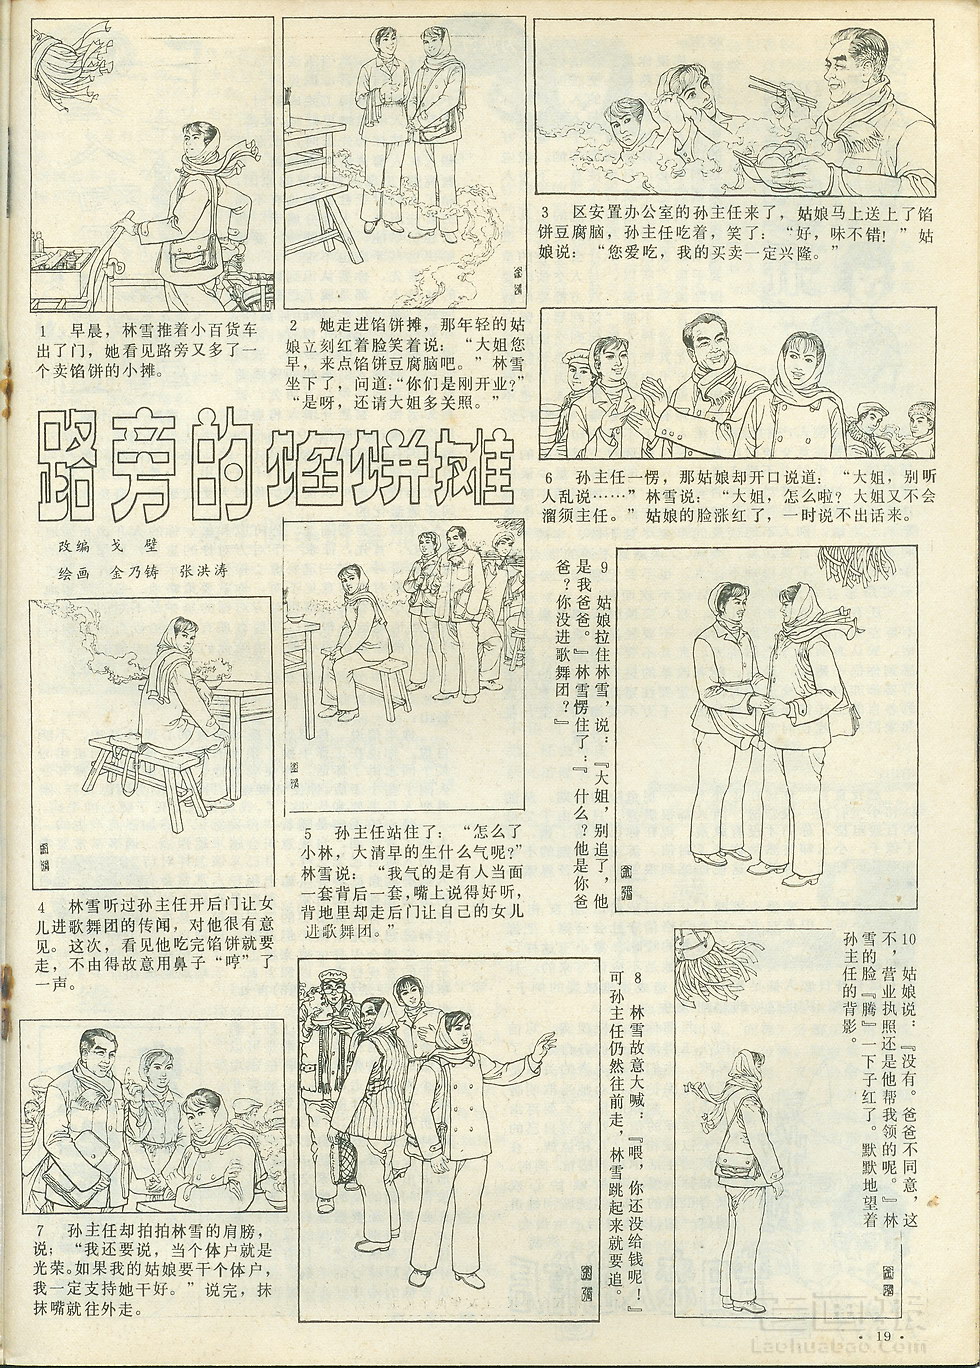 1　早晨，林雪推着小百货车
出了门，她看见路旁又多了一
个卖馅饼的小摊。
2　她走进馅饼摊，那年轻的姑
娘立刻红着脸笑着说：“大姐您
早，来点馅饼豆腐脑吧。”林雪
坐下了，问道：“你们是刚开业？”
“是呀，还请大姐多关照。”
3　区安置办公室的孙主任来了，姑娘马上送上了馅
饼豆腐脑，孙主任吃着，笑了：“好，味不错！”姑
娘说：“您爱吃，我的买卖一定兴隆。”
路旁的馅饼摊
改编　戈　壁
绘画　金乃铸　张洪涛
4　林雪听过孙主任开后门让女
儿进歌舞团的传闻，对他很有意
见。这次，看见他吃完馅饼就要
走，不由得故意用鼻子“哼”了
一声。
5　孙主任站住了：“怎么了
小林，大清早的生什么气呢？”
林雪说：“我气的是有人当面
一套背后一套，嘴上说得好听，
背地里却走后门让自己的女儿
进歌舞团。”
6　孙主任一愣，那姑娘却开口说道：“大姐，别听
人乱说……”林雪说：“大姐，怎么啦？大姐又不会
溜须主任。”姑娘的脸涨红了，一时说不出话来。
7　孙主任却拍拍林雪的肩膀，
说；“我还要说，当个体户就是
光荣。如果我的姑娘要干个体户，
我一定支持她干好。”说完，抹
抹嘴就往外走。
8　林雪故意大喊：『喂，你还没给钱呢！』
可孙主任仍然往前走，林雪跳起来就要追。
9　姑娘拉住林雪，说：『大姐，别追了，他
是我爸爸。』林雪愣住了：『什么？他是你爸
爸？你没进歌舞团？』
10　姑娘说：『没有。爸爸不同意，这
不，营业执照还是他帮我领的呢。』林
雪的脸『腾』一下子红了。默默地望着
孙主任的背影。
· 19 ·
Laohuabao.Com